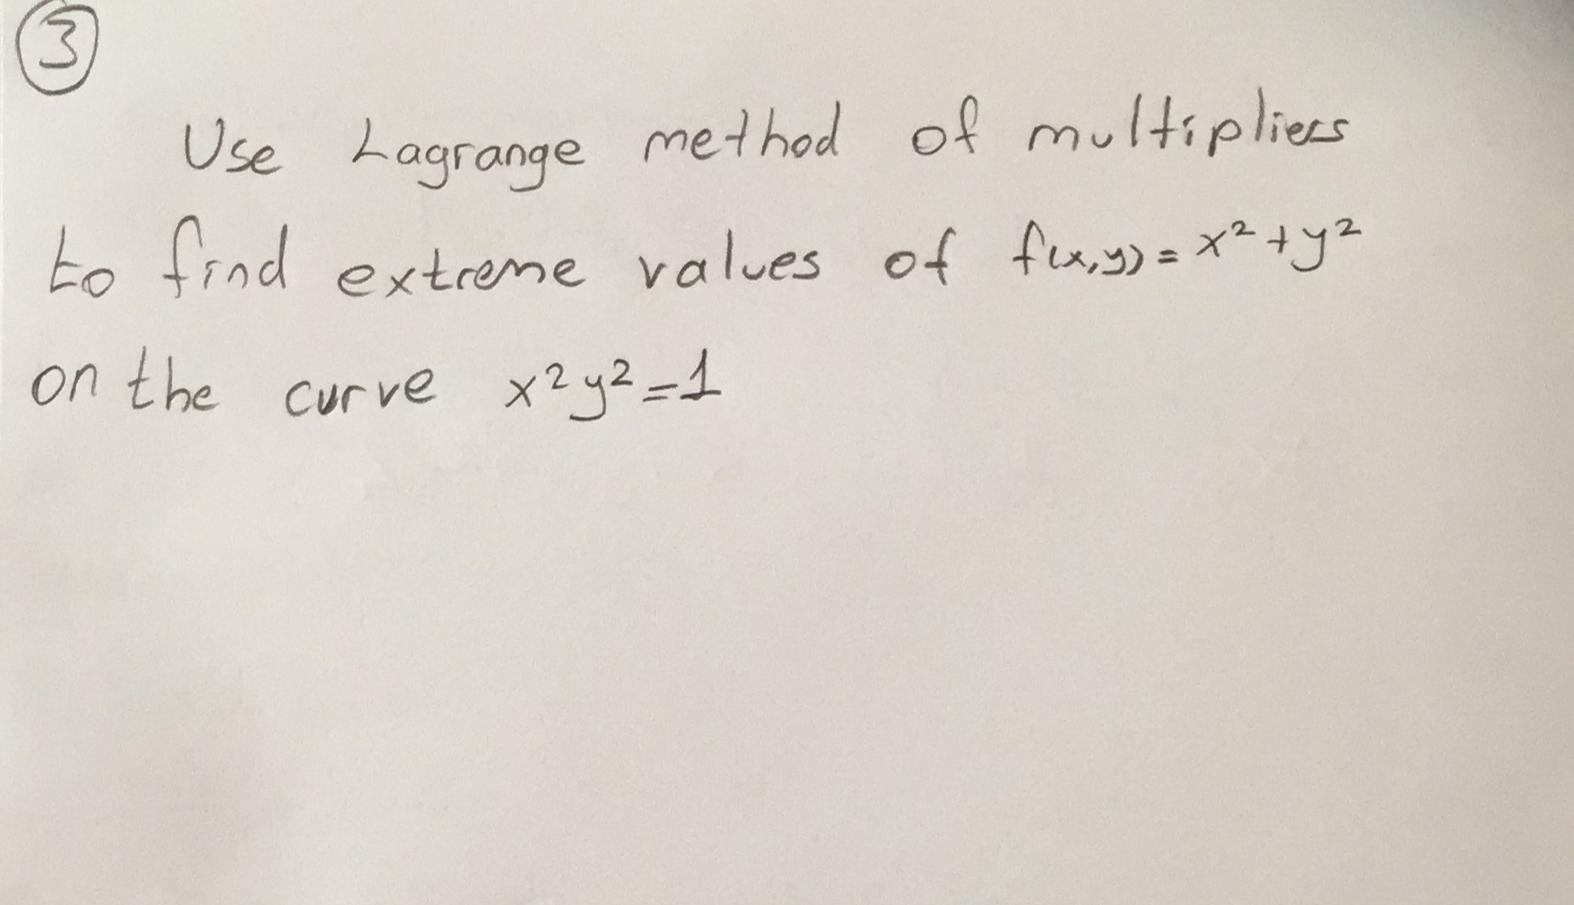 3
Use Lagrange method of multipliers
to find extreme values of f(x,y) = x² + y²
on the curve x² y² = 1